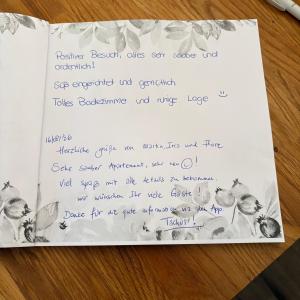 Positiver Besuch, alles sehr sauber und
ordentlich!
Süß eingerichtet und gemütlich
Tolles Badezimmer und ruhige Lage
Herzliche grüße von Marka, Iris und
Sehr sauber Apartament, sehr neu !
Viel Spaß mit alle details zu bekommen.
wir wünschen Ihr viele Gäste !
Danke für die gute information via den App
Tschüss!